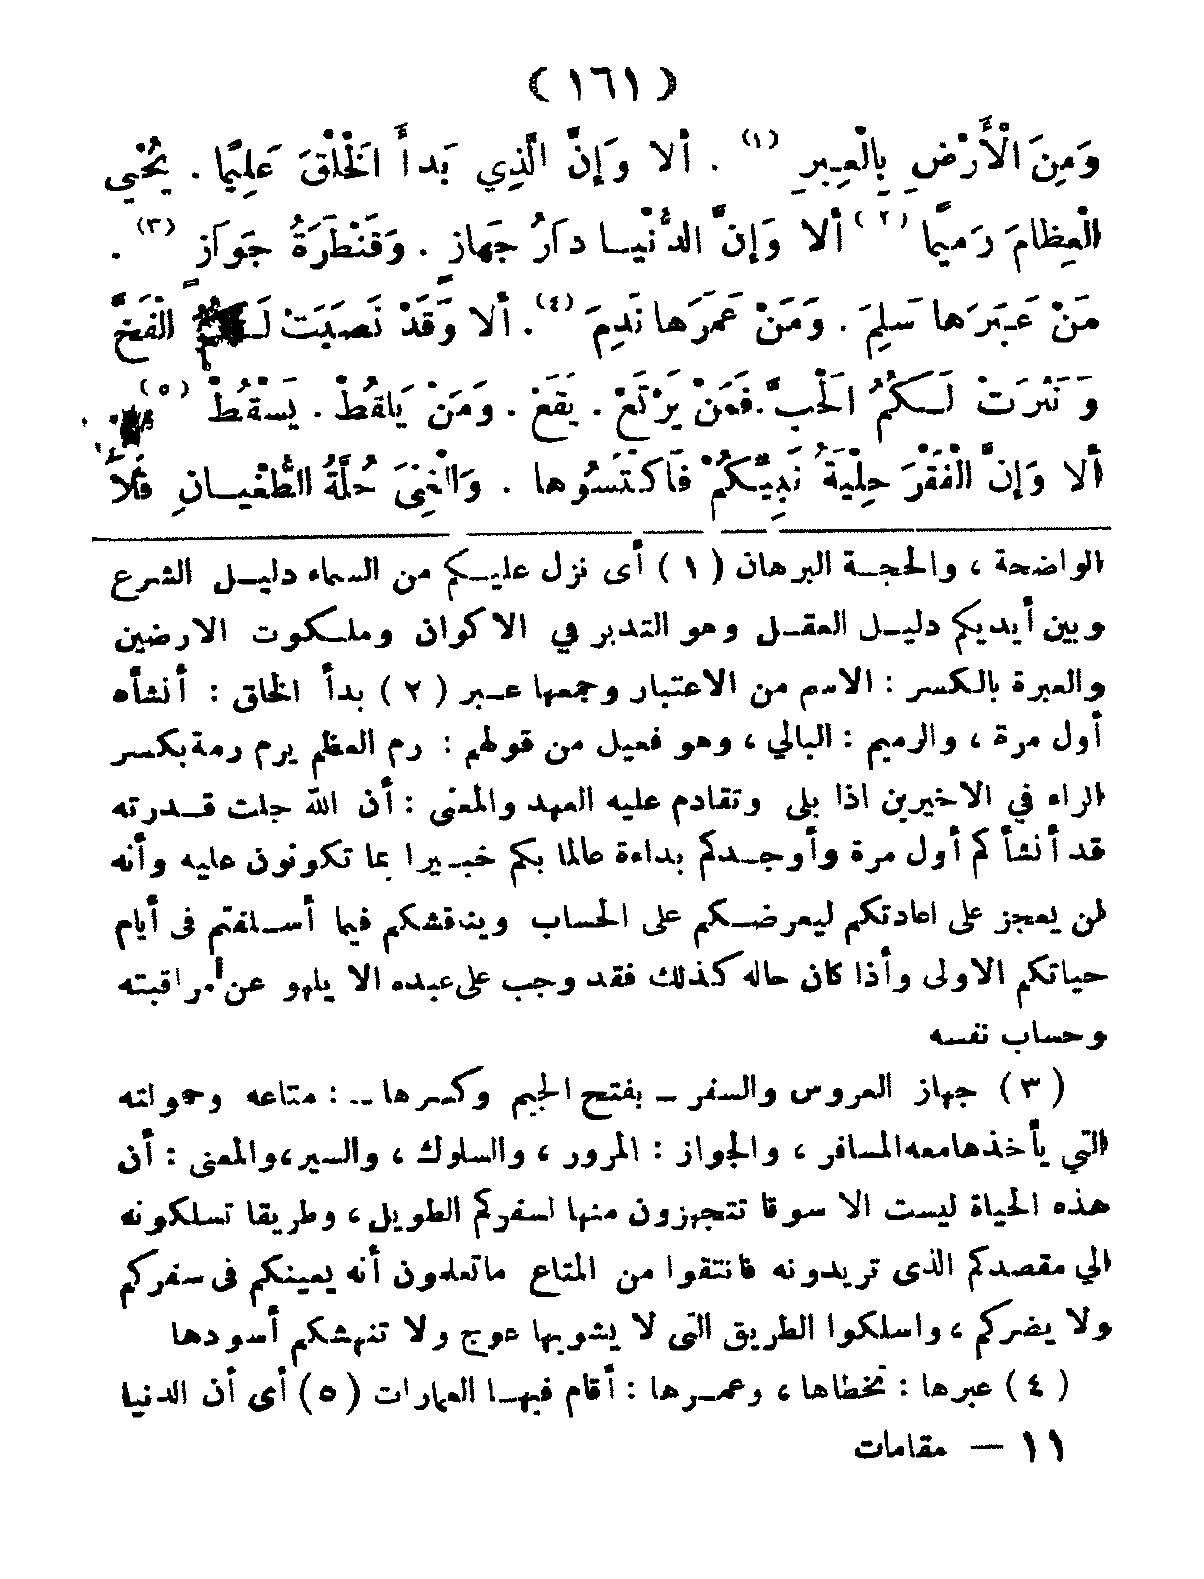 ( ١٦١ )
وَمِنَ الْأَرْضِ بِالْعِبَرِ (١) . ألا وَإِنَّ الَّذِي بَدأَ الْخَلْقَ عَلِيمًا . يُحْيي
الْعِظامَ رَمِيمًا (٢) ألا وَإِنَّ الدُّنْيـا دارُ جَهازٍ . وَقَنْطَرَةُ جَوَازٍ (٣) .
مَنْ عَبَرَها سَلِمَ . وَمَنْ عَمَرَها نَدِمَ (٤) . ألا وَقَدْ نَصَبَتْ لَـكُمُ الْفَخَّ
وَنَثَرَتْ لَـكُمُ الْحَبَّ . فَمَنْ يَرْتَعْ . يَقَعْ . وَمَنْ يَلْقُطْ . يَسْقُطْ (٥)
ألا وَإِنَّ الْفَقْرَ حِلْيَةُ نَبِيِّـكُمْ فَاكْتَسُوها . وَالْغِنَى حُلَّةُ الطُّغْيـانِ فَلاَ
الواضحة ، والحجـة البرهان ( ١ ) أى نزل عليـكم من السماء دليـل الشرع
وبين أيديكم دليـل العقـل وهو التدبر في الاكوان وملـكوت الارضين
والعبرة بالـكسر : الاسم من الاعتبار وجمعها عـبر ( ٢ ) بدأ الخلق : أنشأه
أول مرة ، والرميم : البالي ، وهو فعيل من قولهم : رم العظم يرم رمة بكسر
الراء في الاخيرين اذا بلى وتقادم عليه العهد والمعنى : أن الله جلت قـدرته
قد أنشأكم أول مرة وأوجـدكم بداءة عالما بكم خبـيرا بما تكونون عليه وأنه
لن يعجز على اعادتكم ليعرضـكم على الحساب ويناقشكم فيما أسـلفتم فى أيام
حياتكم الاولى وأذا كان حاله كذلك فقد وجب على عبده الا يلهو عن مراقبته
وحساب نفسه
( ٣ ) جهاز العروس والسفر ـ بفتح الجيم وكسرها ـ : متاعه وحمولته
التي يأخذها معه المسافر ، والجواز : المرور ، والسلوك ، والسير ، والمعنى : أن
هذه الحياة ليست الا سوقا تتجهزون منها لسفركم الطويل ، وطريقا تسلكونه
الي مقصدكم الذى تريدونه فانتقوا من المتاع ماتعلمون أنه يعينكم فى سفركم
ولا يضركم ، واسلكوا الطريق التى لا يشوبها عوج ولا تنهشكم أسودها
( ٤ ) عبرها : تخطاها ، وعمـرها : أقام فيهـا العمارات ( ٥ ) أى أن الدنيا
١١ — مقامات